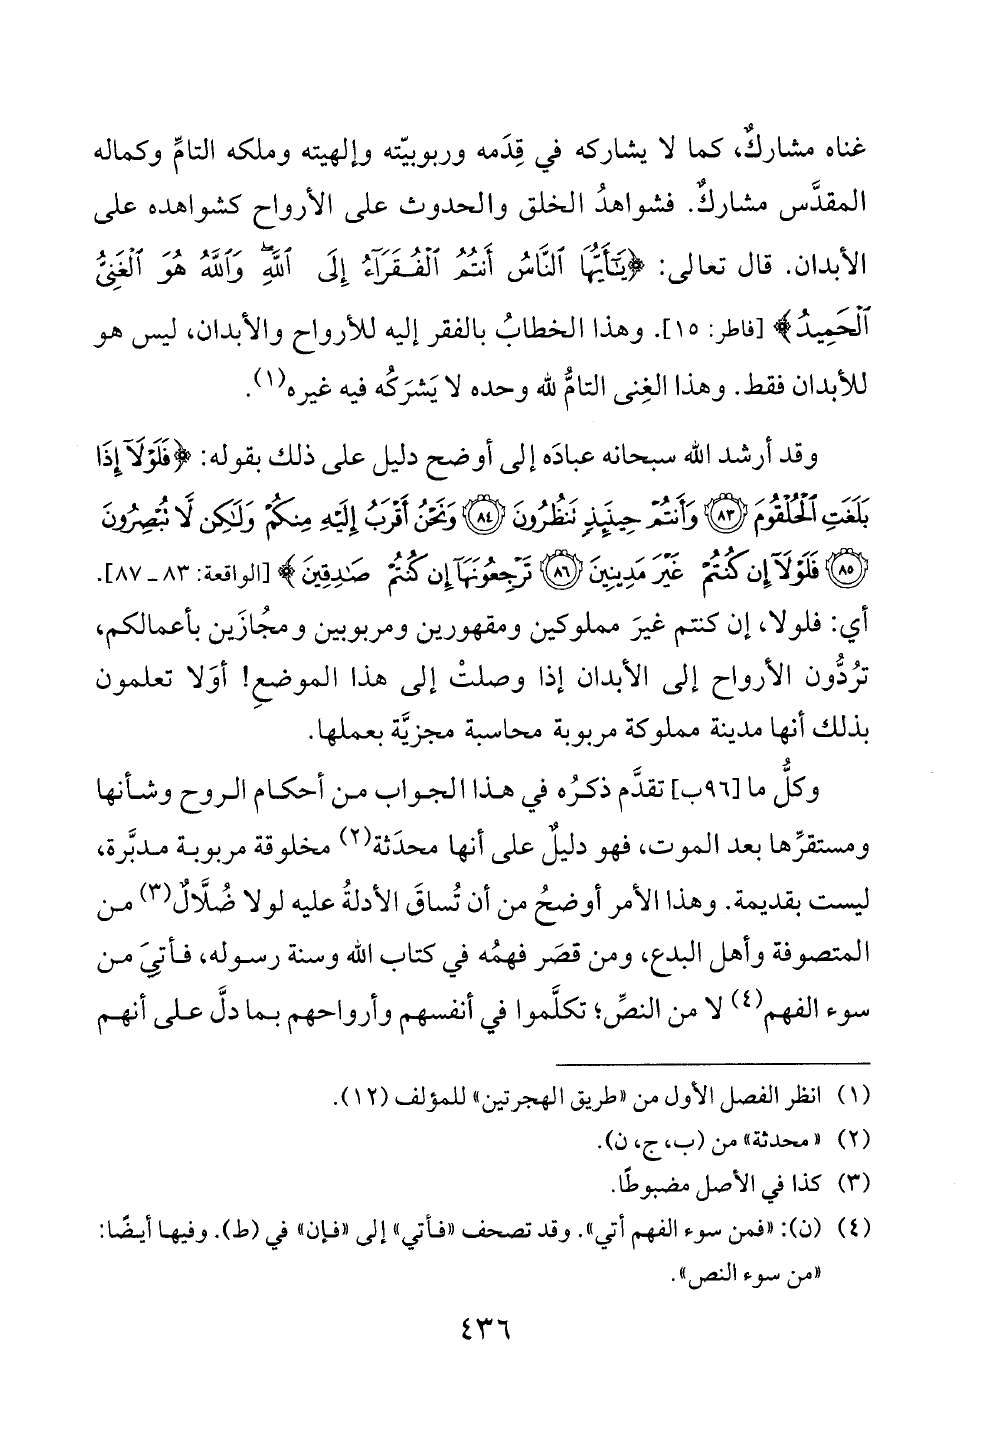 غناه مشاركٌ، كما لا يشاركه في قِدَمه وربوبيّته وإلهيته وملكه التامِّ وكماله
المقدَّس مشاركٌ. فشواهدُ الخلق والحدوث على الأرواح كشواهده على
الأبدان. قال تعالى: ﴿يَـٰٓأَيُّهَا ٱلنَّاسُ أَنتُمُ ٱلْفُقَرَآءُ إِلَى ٱللَّهِ ۖ وَٱللَّهُ هُوَ ٱلْغَنِىُّ
ٱلْحَمِيدُ﴾ [فاطر: ١٥]. وهذا الخطابُ بالفقر إليه للأرواح والأبدان، ليس هو
للأبدان فقط. وهذا الغِنى التامُّ لله وحده لا يَشرَكُه فيه غيره(١).
وقد أرشد الله سبحانه عبادَه إلى أوضح دليل على ذلك بقوله: ﴿فَلَوْلَآ إِذَا
بَلَغَتِ ٱلْحُلْقُومَ ﴿٨٣﴾ وَأَنتُمْ حِينَئِذٍ تَنظُرُونَ ﴿٨٤﴾ وَنَحْنُ أَقْرَبُ إِلَيْهِ مِنكُمْ وَلَـٰكِن لَّا تُبْصِرُونَ
﴿٨٥﴾ فَلَوْلَآ إِن كُنتُمْ غَيْرَ مَدِينِينَ ﴿٨٦﴾ تَرْجِعُونَهَآ إِن كُنتُمْ صَـٰدِقِينَ﴾ [الواقعة: ٨٣ ـ ٨٧].
أي: فلولا، إن كنتم غيرَ مملوكين ومقهورين ومربوبين ومجُازَين بأعمالكم،
ترُدُّون الأرواح إلى الأبدان إذا وصلتْ إلى هذا الموضعِ! أوَلا تعلمون
بذلك أنها مدينة مملوكة مربوبة محاسبة مجزيَّة بعملها.
وكلُّ ما [٩٦ب] تقدَّم ذكرُه في هذا الجواب من أحكام الروح وشأنها
ومستقرِّها بعد الموت، فهو دليلٌ على أنها محدَثة(٢) مخلوقة مربوبة مدبَّرة،
ليست بقديمة. وهذا الأمر أوضحُ من أن تُساقَ الأدلةُ عليه لولا ضُلَّالٌ(٣) من
المتصوفة وأهل البدع، ومن قصَر فهمُه في كتاب الله وسنة رسوله، فأتيَ من
سوء الفهم(٤) لا من النصِّ؛ تكلَّموا في أنفسهم وأرواحهم بما دلَّ على أنهم
(١) انظر الفصل الأول من «طريق الهجرتين» للمؤلف (١٢).
(٢) «محدثة» من (ب، ج، ن).
(٣) كذا في الأصل مضبوطًا.
(٤) (ن): «فمن سوء الفهم أتي». وقد تصحف «فأتي» إلى «فإن» في (ط). وفيها أيضًا:
«من سوء النص».
٤٣٦